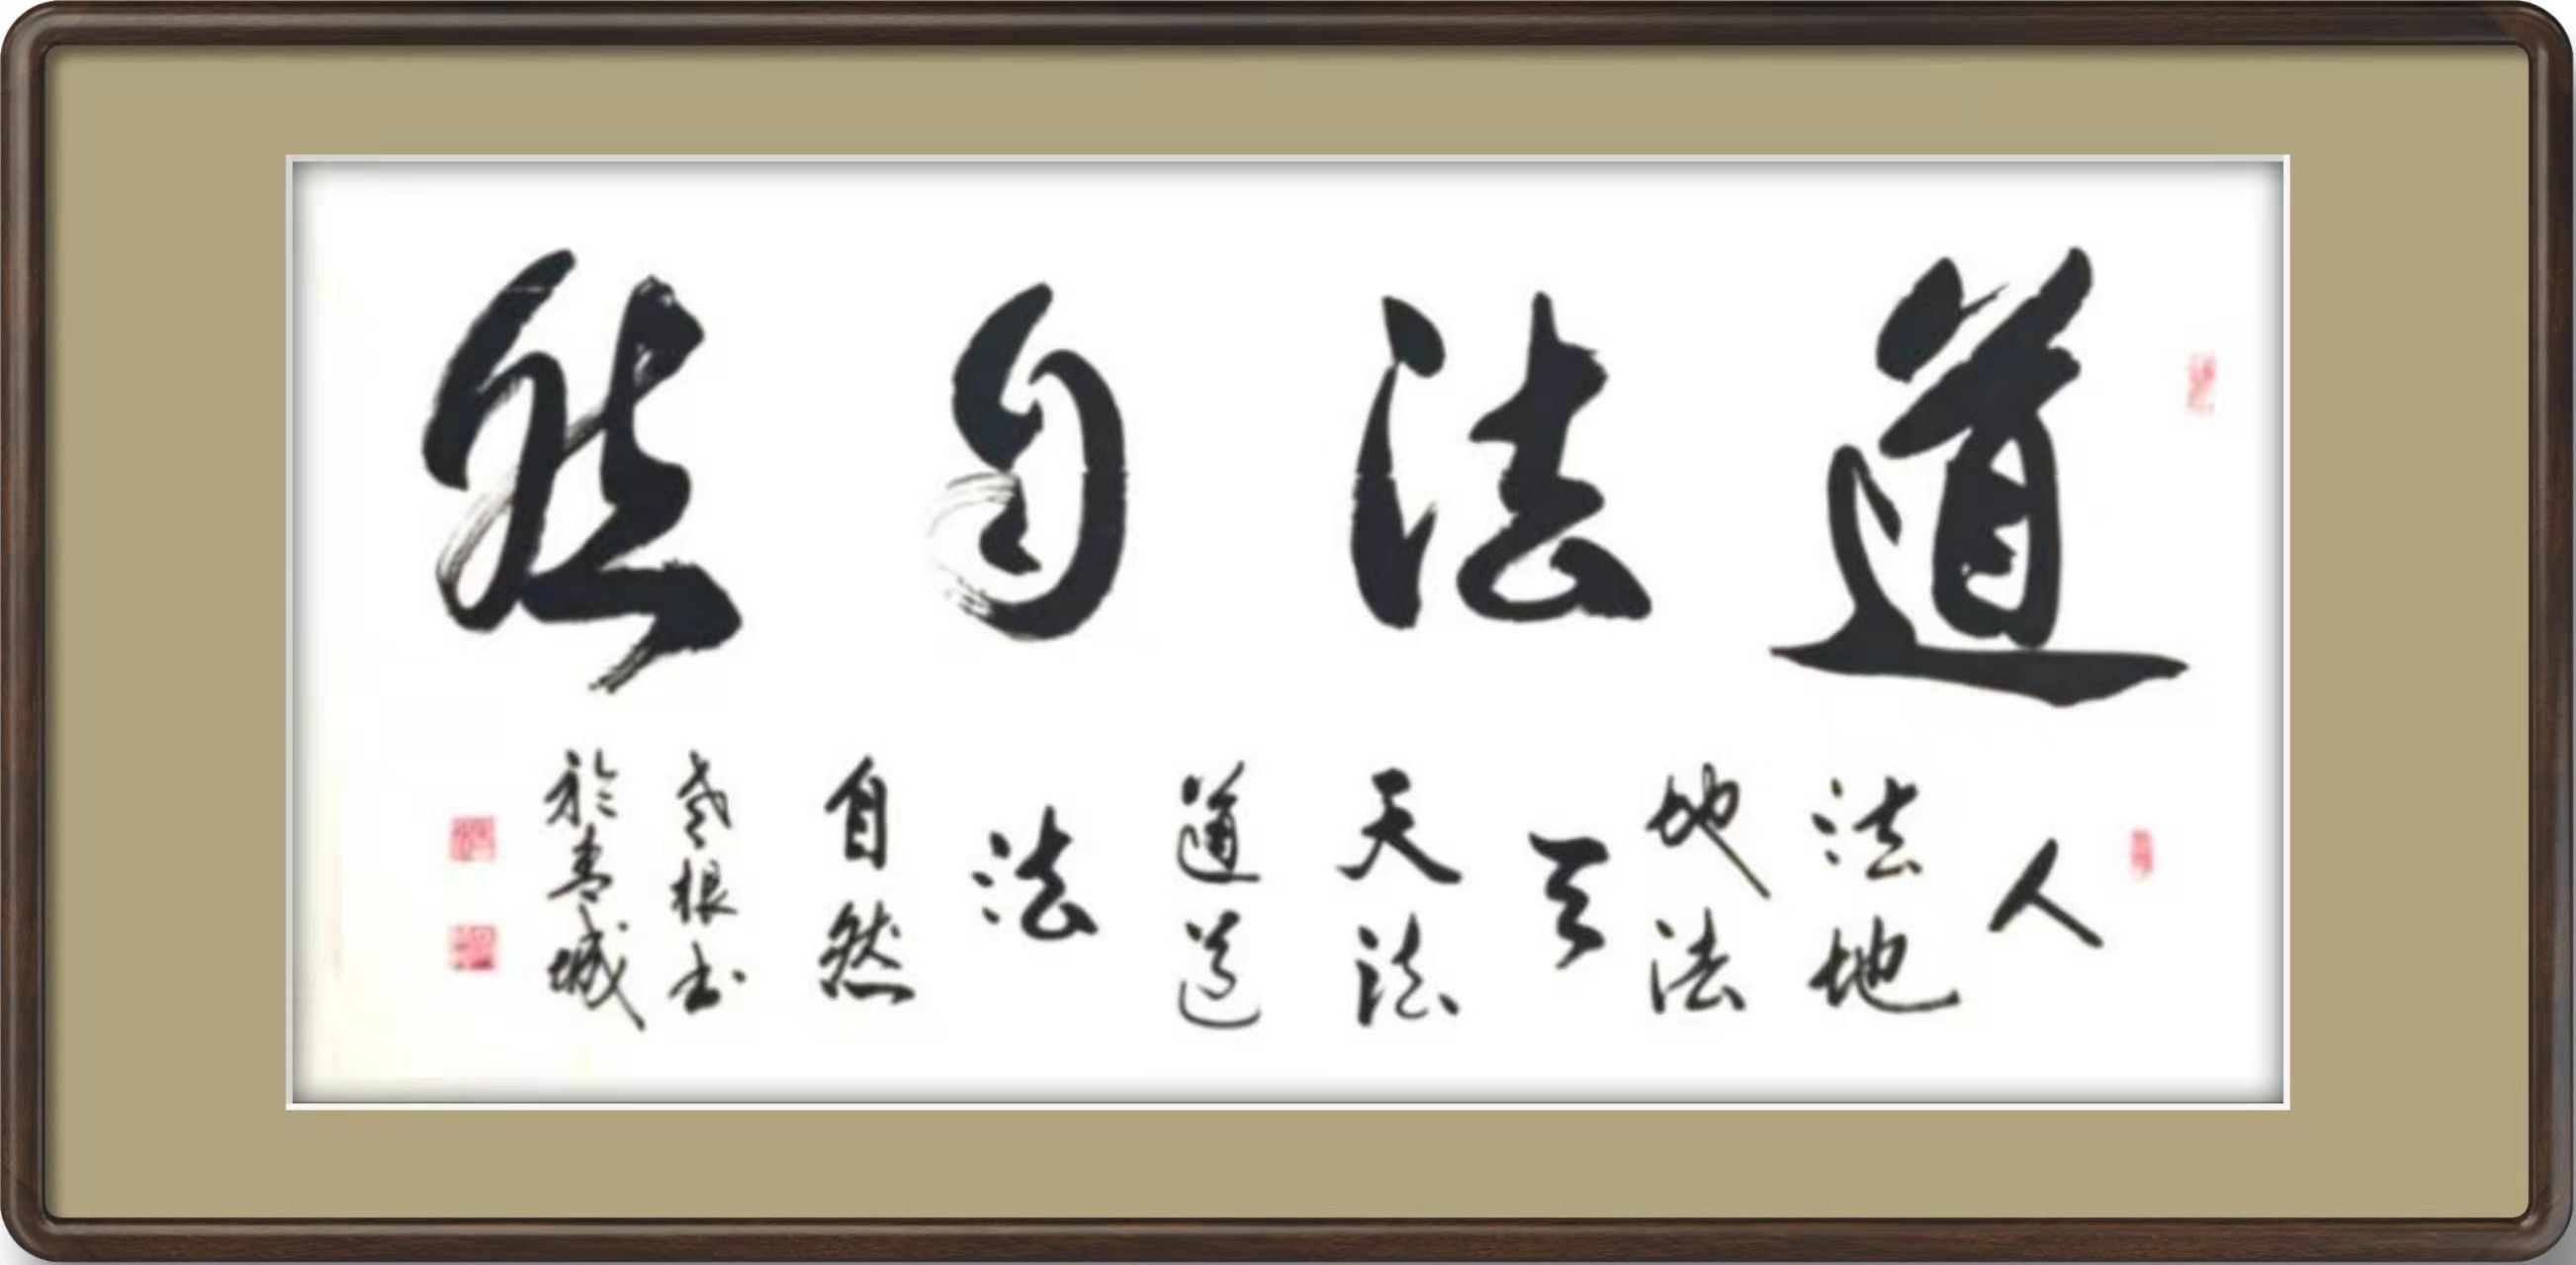 道法自然
人
法地
地法
天
天法
道道
法
自然
根书
於青城